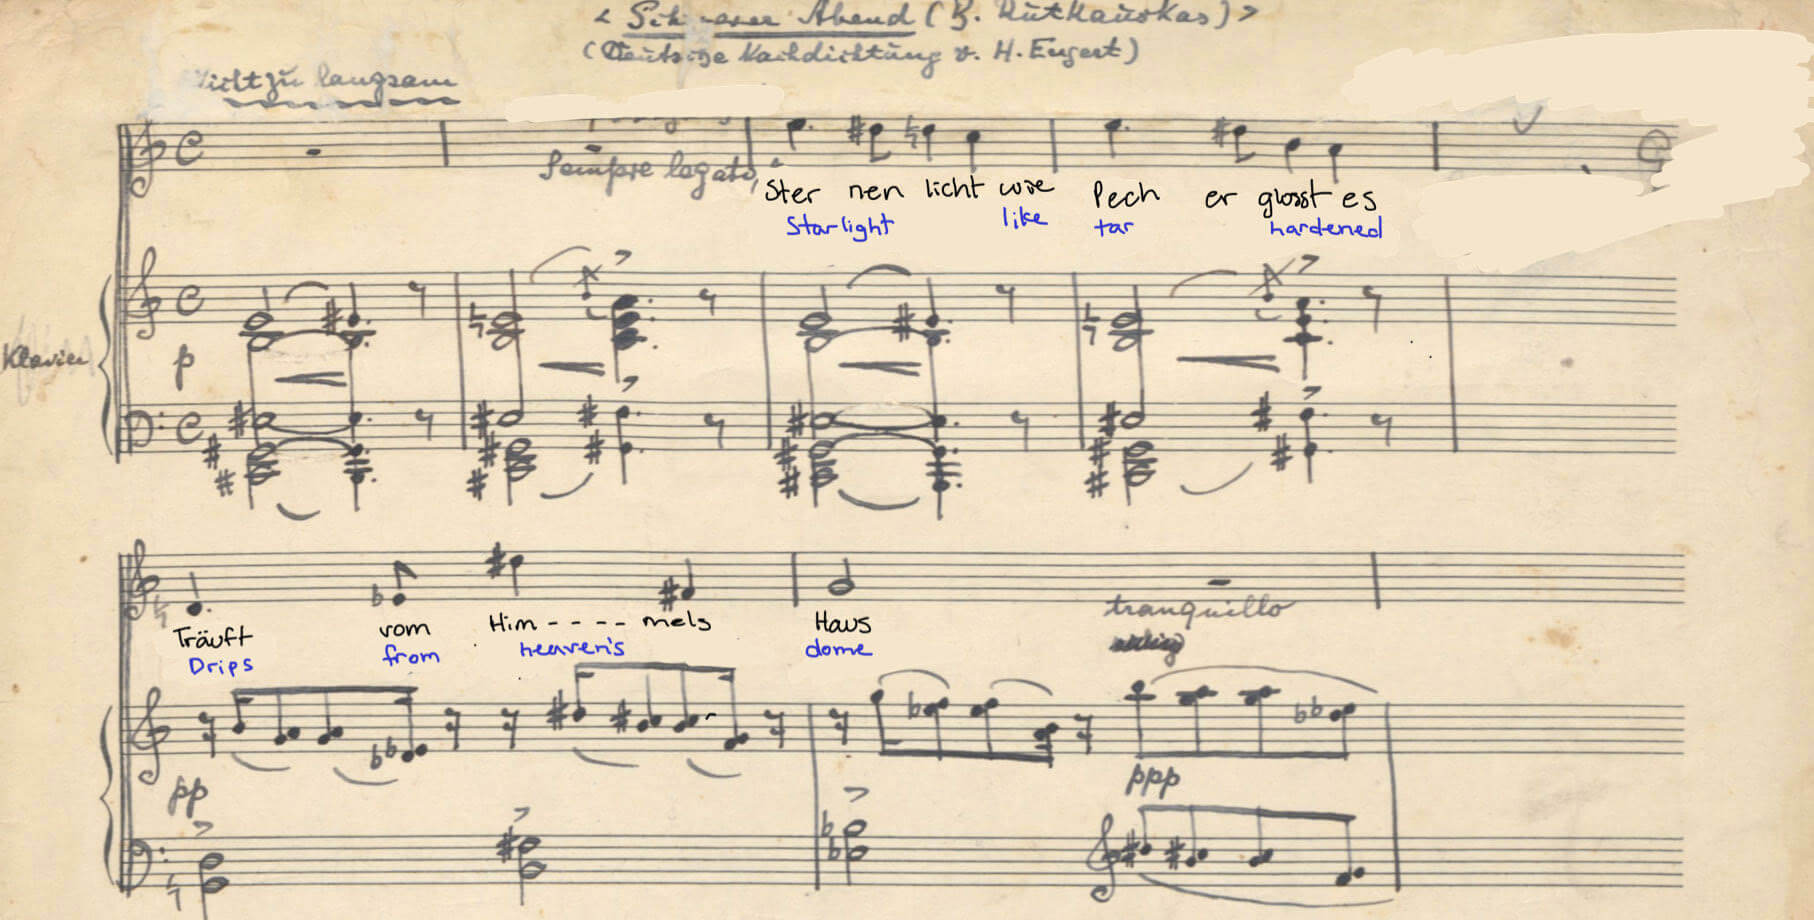 < Abend (B. Rutkauskas) >
(Deutsche Nachdichtung v. H. Engert)
Nicht zu langsam
Sempre legato,
Ster nen licht wie Pech er glosst es
Starlight like tar hardened
Klavier
p
Träuft vom Him - - - - mels Haus
Drips from heaven's dome
tranquillo
pp
ppp